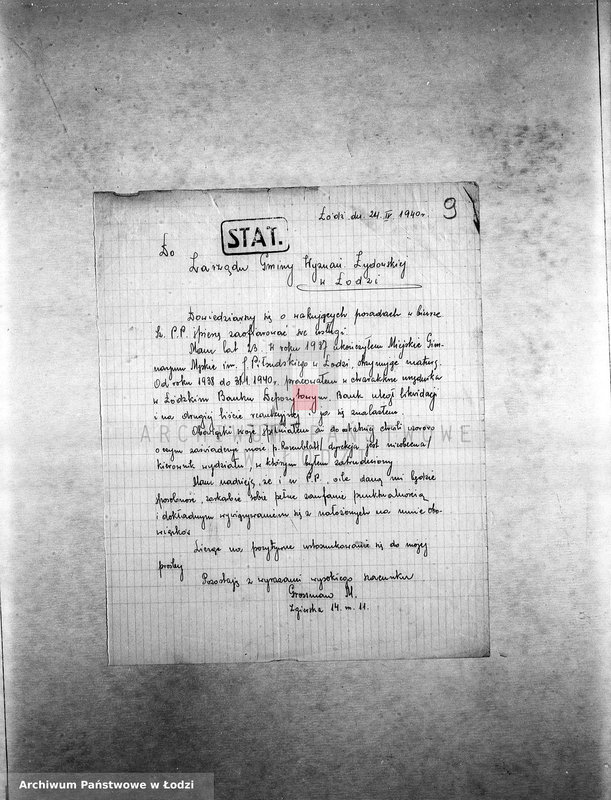 Łódź, dn. 24. IV. 1940 r. 9
STAT.
Do
Zarządu Gminy Wyznań. Żydowskiej
w Łodzi
Dowiedziawszy się o wakujących posadach w biurze
Sz. P.P. spieszę zaofiarować swe usługi.
Mam lat 23. W roku 1937 ukończyłem Miejskie Gim-
nazjum Męskie im. J. Piłsudskiego w Łodzi, otrzymując maturę.
Od roku 1938 do 31.I.1940 r. pracowałem w charakterze urzędnika
w Łódzkim Banku Depozytowym. Bank uległ likwidacji
i na drugiej liście redukcyjnej i ja się znalazłem.
Obowiązki swoje spełniałem aż do ostatniej chwili wzorowo
o czym zaświadczy może p. Rosenblatt/ dyrekcja jest nieobecna/
kierownik wydziału, w którym byłem zatrudniony
Mam nadzieję, że i w P.P. o ile daną mi będzie
sposobność, zaskarbię sobie pełne zaufanie punktualnością
i dokładnym wywiązywaniem się z nałożonych na mnie obo-
wiązków
Licząc na pozytywne ustosunkowanie się do mojej
prośby
Pozostaję z wyrazami wysokiego szacunku
Grossman M.
Zgierska 14. m. 11.
Archiwum Państwowe w Łodzi